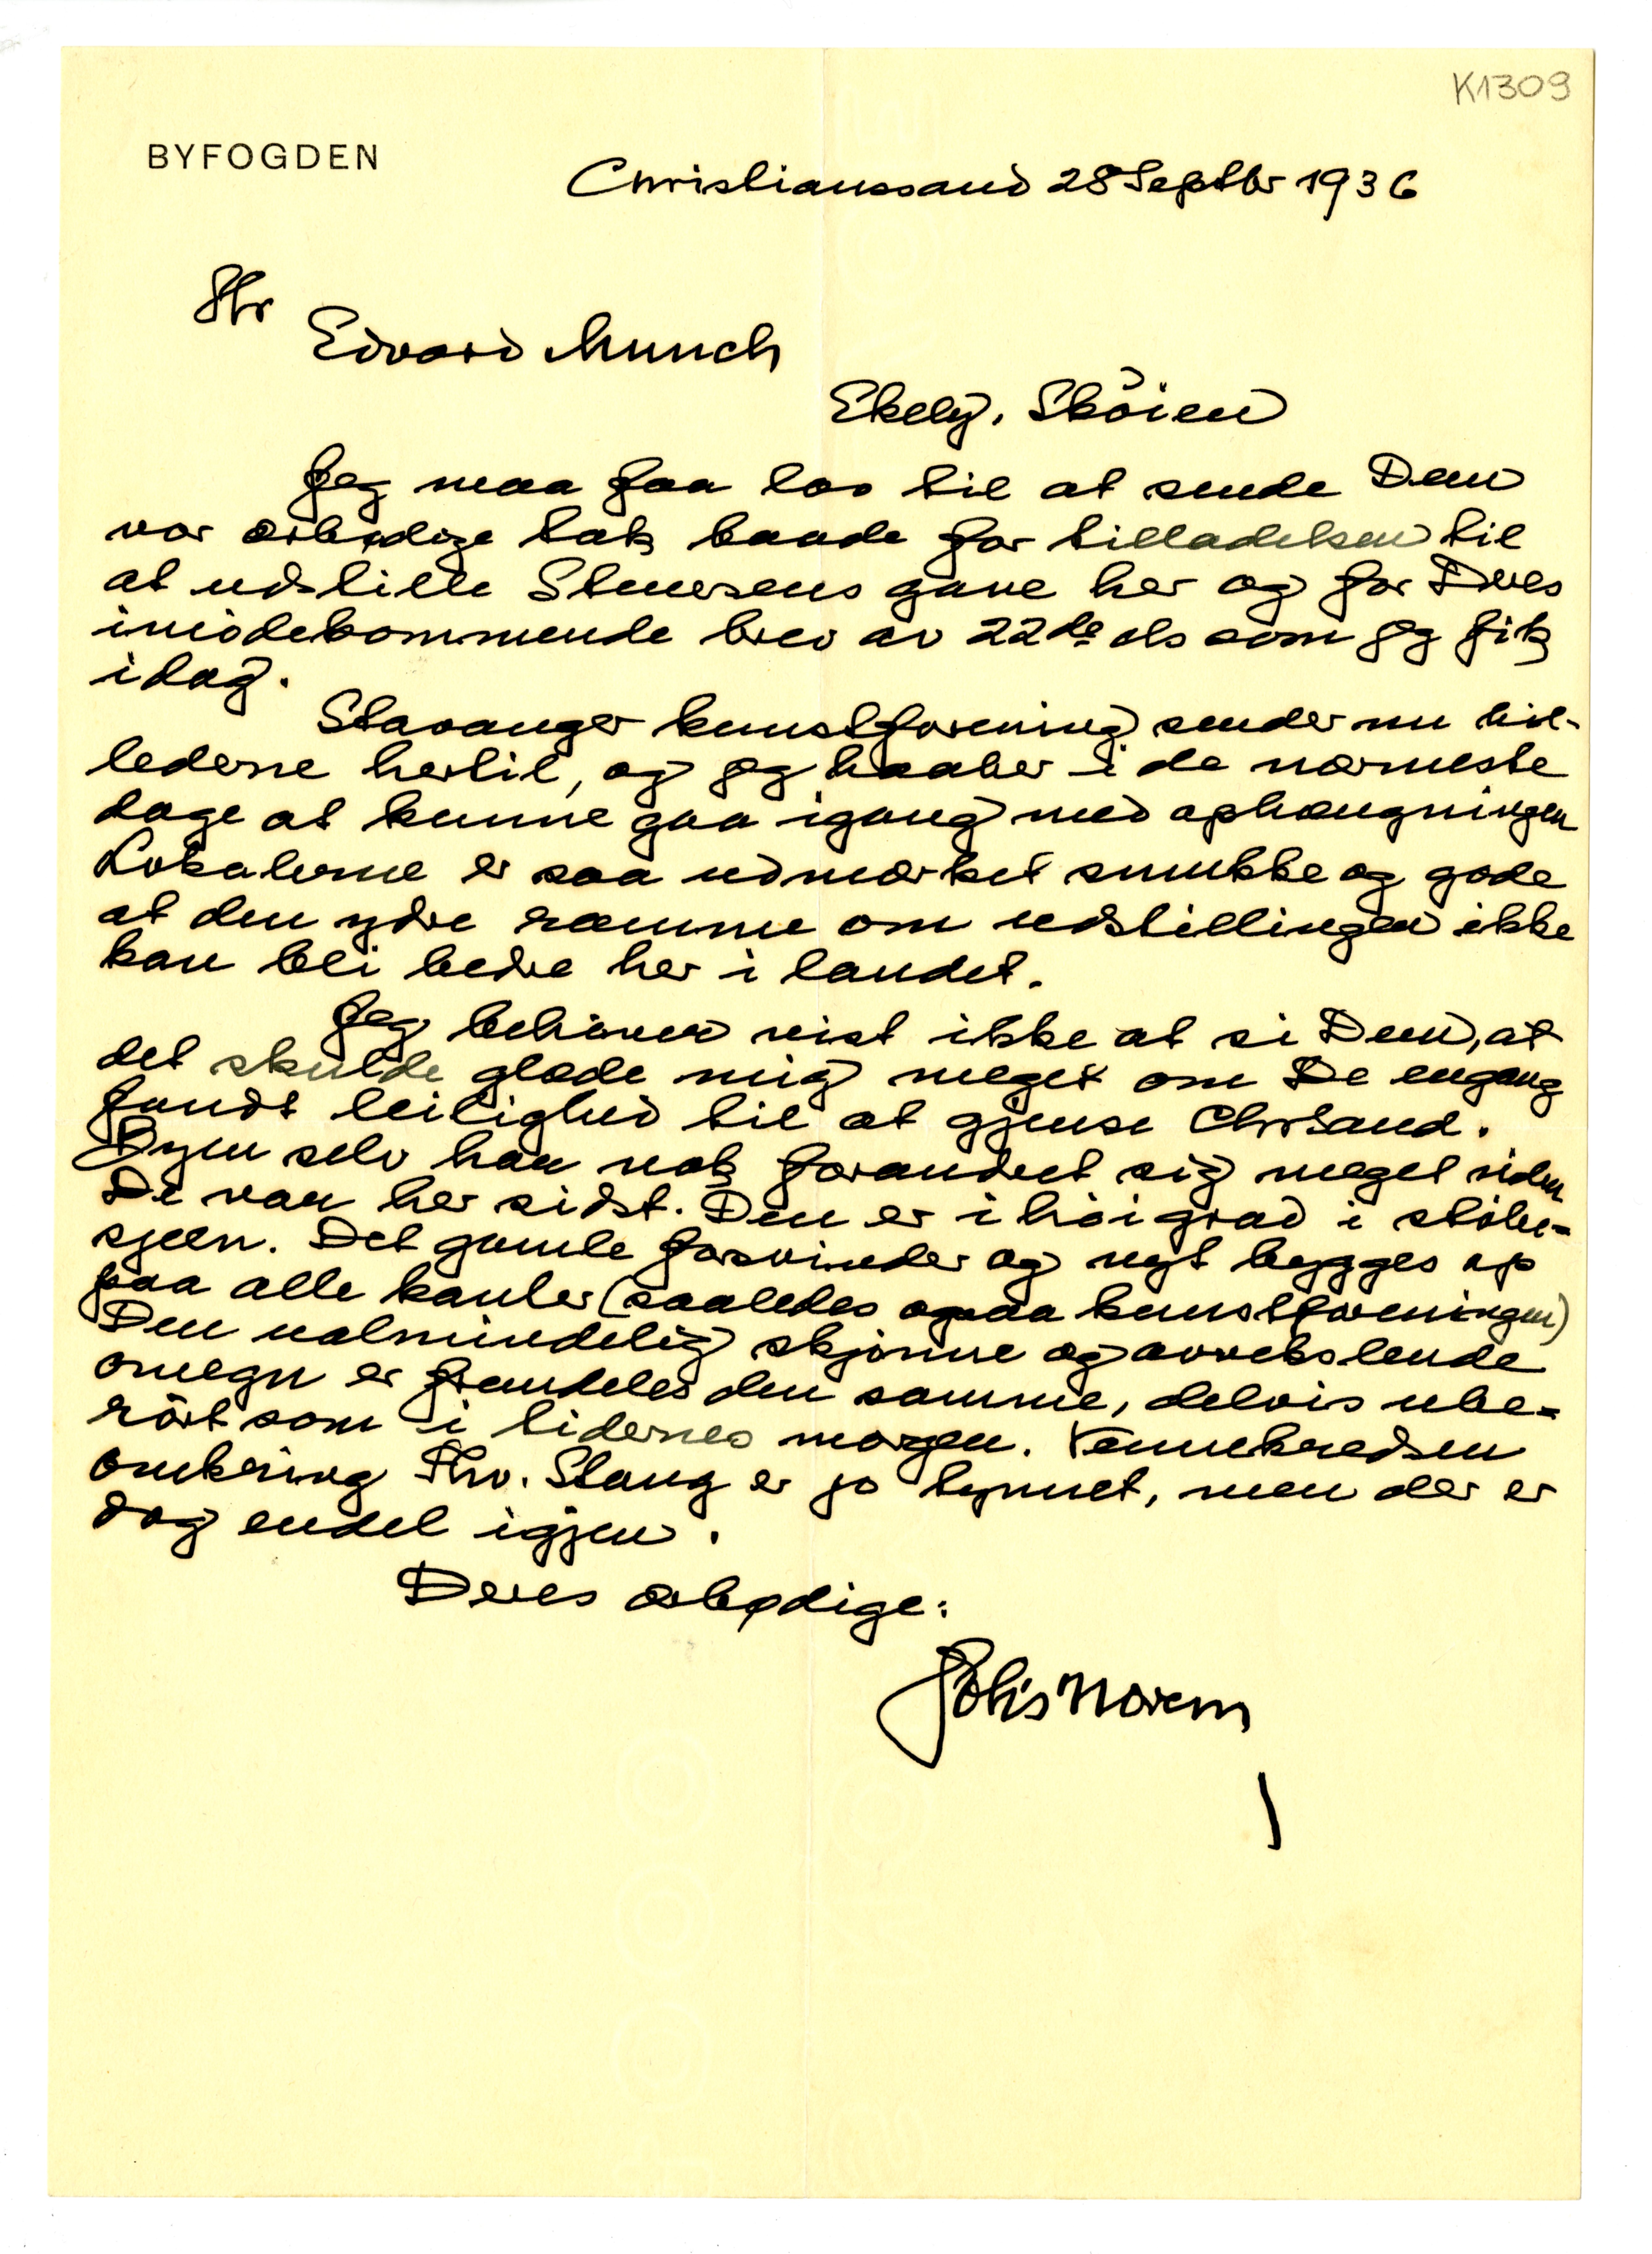 K1309
BYFOGDEN
Christianssand 28 Septbr 1936
Hr
Edvard Munch
Ekely, Sköien
Jeg maa faa lov til at sende Dem
vor ærbødige tak baade for tilladelsen til
at udstille Stenersens gave her og for Deres
imödekommende brev av 22de ds som jeg fik
idag.
Stavanger kunstforening sender nu bil-
lederne hertil, og jeg haaber i de nærmeste
dage at kunne gaa igang med ophængningen
Lokalerne er saa udmærket smukke og gode
at den ydre ramme om udstillingen ikke
kan bli bedre her i landet.
Jeg behöver vist ikke at si Dem, at
det skulde glæde mig meget om De engang
fandt leilighed til at gjense Chrsand.
Byen selv har nok forandret sig meget siden
De var her sidst. Den er i höi grad i stöbe-
sjeen. Det gamle forsvinder og nyt bygges op
paa alle kanter (saaledes ogsaa kunstforeningen)
Den ualmindelig skjönne og avvekslende
omegn er fremdeles den samme, delvis ube-
rört som i tidernes morgen. Vennekredsen
omkring Thv. Stang er jo tynnet, men der er
dog endel igjen.
Deres ærbødige:
Johs Norem